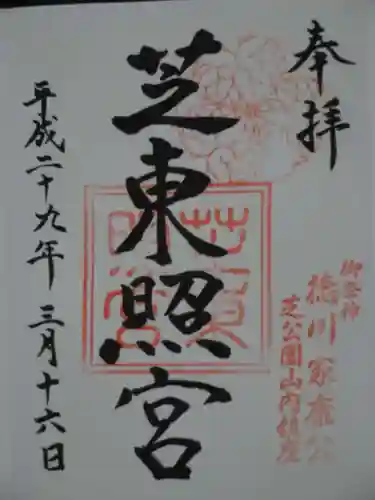 奉拝
御祭神
徳川家康公
芝公園山内鎮座
芝東照宮
平成二十九年 三月十六日